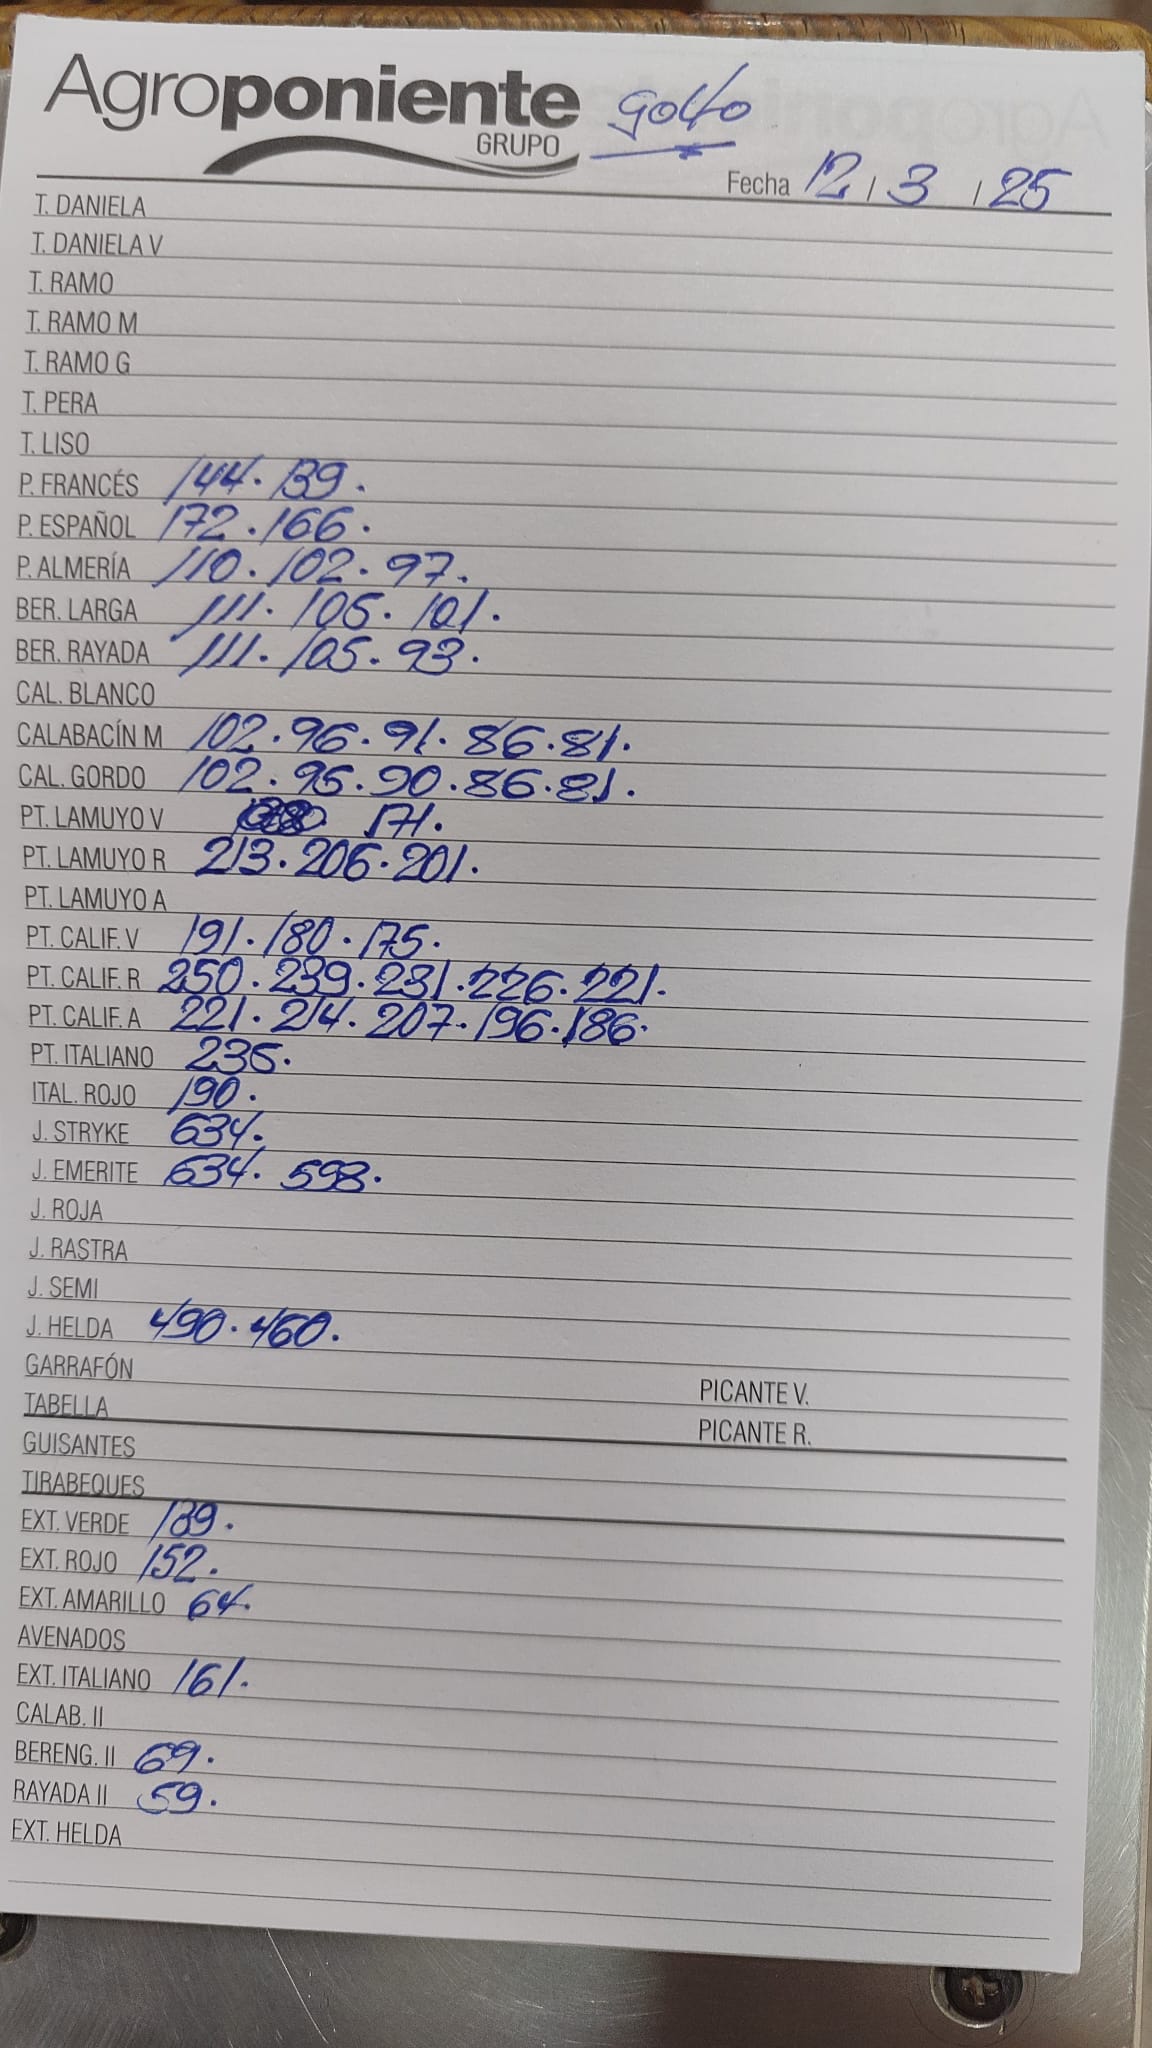 Agroponiente
GRUPO
golfo
Fecha 12 / 3 / 25
T. DANIELA
T. DANIELA V
T. RAMO
T. RAMO M
T. RAMO G
T. PERA
T. LISO
P. FRANCÉS 144. 139.
P. ESPAÑOL 172. 166.
P. ALMERÍA 110. 102. 97.
BER. LARGA 111. 105. 101.
BER. RAYADA 111. 105. 93.
CAL. BLANCO
CALABACÍN M 102. 96. 91. 86. 81.
CAL. GORDO 102. 95. 90. 86. 81.
PT. LAMUYO V 171.
PT. LAMUYO R 213. 206. 201.
PT. LAMUYO A
PT. CALIF. V 191. 180. 175.
PT. CALIF. R 250. 239. 231. 226. 221.
PT. CALIF. A 221. 214. 207. 196. 186.
PT. ITALIANO 235.
ITAL. ROJO 190.
J. STRYKE 634.
J. EMERITE 634. 598.
J. ROJA
J. RASTRA
J. SEMI
J. HELDA 490. 460.
GARRAFÓN PICANTE V.
TABELLA PICANTE R.
GUISANTES
TIRABEQUES
EXT. VERDE 139.
EXT. ROJO 152.
EXT. AMARILLO 64.
AVENADOS
EXT. ITALIANO 161.
CALAB. II
BERENG. II 69.
RAYADA II 59.
EXT. HELDA